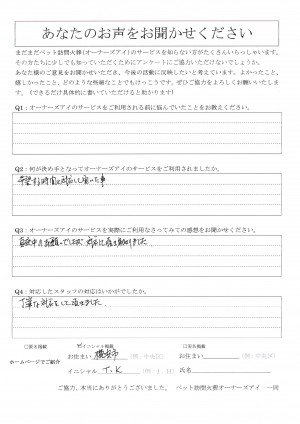 あなたのお声をお聞かせください
まだまだペット訪問火葬(オーナーズアイ)のサービスを知らない方がたくさんいらっしゃいます。
その方たちに少しでも知っていただくためにアンケートにご協力いただけないでしょうか。
あなた様のご意見をお聞かせいただき、今後の活動に反映したいと考えています。よかったこと、
嬉しかったこと、どのような些細なことでもけっこうです。ぜひご協力をよろしくお願いいたしま
す。(できるだけ具体的に書いていただけると助かります)
Q1：オーナーズアイのサービスをご利用される前に悩んでいたことをお教えください。
Q2：何が決め手となってオーナーズアイのサービスをご利用されましたか。
希望する時間に対応して頂いた事
Q3：オーナーズアイのサービスを実際にご利用なさってみての感想をお聞かせください。
真夜中のお願いでしたが、対応して頂き助かりました。
Q4：対応したスタッフの対応はいかがでしたか。
丁寧な対応をして頂きました。
□実名掲載 ☑イニシャル掲載 □匿名掲載
ホームページでご紹介 お住まい 横浜市 (例：中央区) お住まい (例：中央区)
イニシャル T.K (例：T．H)
ご協力、本当にありがとうございました。 ペット訪問火葬オーナーズアイ 一同